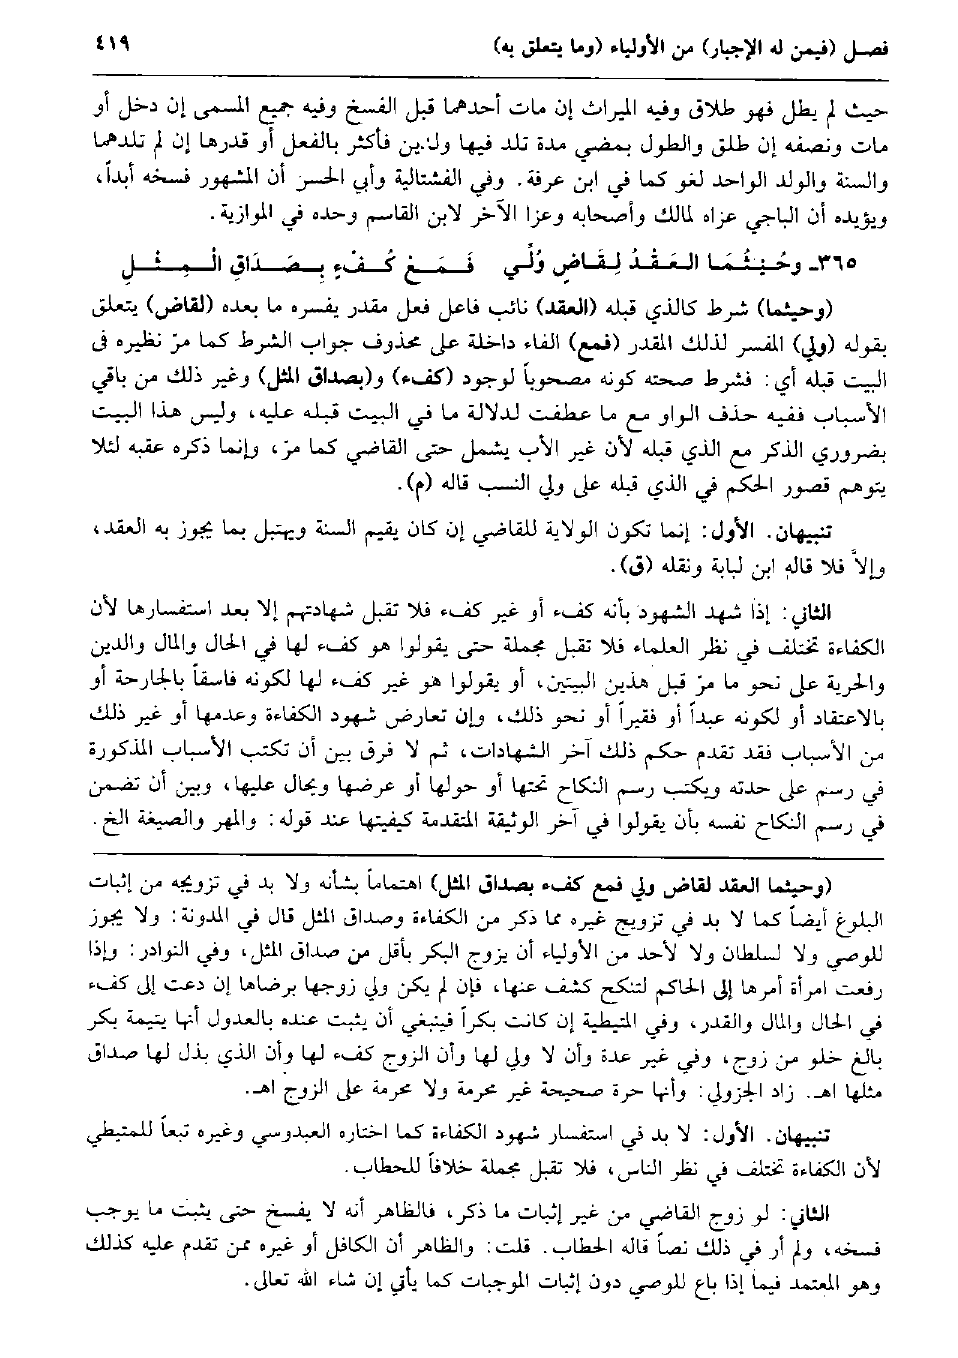 فصل (فيمن له الإجبار) من الأولياء (وما يتعلق به) ٤١٩
حيث لم يطل فهو طلاق وفيه الميراث إن مات أحدهما قبل الفسخ وفيه جميع المسمى إن دخل أو
مات ونصفه إن طلق والطول بمضي مدة تلد فيها ولدين فأكثر بالفعل أو قدرها إن لم تلدهما
والسنة والولد الواحد لغو كما في ابن عرفة. وفي الفشتالية وأبي الحسن أن المشهور فسخه أبداً،
ويؤيده أن الباجي عزاه لمالك وأصحابه وعزا الآخر لابن القاسم وحده في الموازية.
٣٦٥ـ وحَيْثُمَا العَقْدُ لِقَاضٍ وُلِّي فَمَعَ كُفْءٍ بِصَدَاقِ الْمِثْلِ
(وحيثما) شرط كالذي قبله (العقد) نائب فاعل فعل مقدر يفسره ما بعده (لقاض) يتعلق
بقوله (ولي) المفسر لذلك المقدر (فمع) الفاء داخلة على محذوف جواب الشرط كما مرّ نظيره في
البيت قبله أي: فشرط صحته كونه مصحوباً لوجود (كفء) و(بصداق المثل) وغير ذلك من باقي
الأسباب ففيه حذف الواو مع ما عطفت لدلالة ما في البيت قبله عليه، وليس هذا البيت
بضروري الذكر مع الذي قبله لأن غير الأب يشمل حتى القاضي كما مرّ، وإنما ذكره عقبه لئلا
يتوهم قصور الحكم في الذي قبله على ولي النسب قاله (م).
تنبيهان. الأول: إنما تكون الولاية للقاضي إن كان يقيم السنة ويهتبل بما يجوز به العقد،
وإلاَّ فلا قاله ابن لبابة ونقله (ق).
الثاني: إذا شهد الشهود بأنه كفء أو غير كفء فلا تقبل شهادتهم إلا بعد استفسارها لأن
الكفاءة تختلف في نظر العلماء فلا تقبل مجملة حتى يقولوا هو كفء لها في الحال والمال والدين
والحرية على نحو ما مرّ قبل هذين البيتين، أو يقولوا هو غير كفء لها لكونه فاسقاً بالجارحة أو
بالاعتقاد أو لكونه عبداً أو فقيراً أو نحو ذلك، وإن تعارض شهود الكفاءة وعدمها أو غير ذلك
من الأسباب فقد تقدم حكم ذلك آخر الشهادات، ثم لا فرق بين أن تكتب الأسباب المذكورة
في رسم على حدته ويكتب رسم النكاح تحتها أو حولها أو عرضها ويحال عليها، وبين أن تضمن
في رسم النكاح نفسه بأن يقولوا في آخر الوثيقة المتقدمة كيفيتها عند قوله: والمهر والصيغة الخ.
(وحيثما العقد لقاض ولي فمع كفء بصداق المثل) اهتماماً بشأنه ولا بد في تزويجه من إثبات
البلوغ أيضاً كما لا بد في تزويج غيره مما ذكر من الكفاءة وصداق المثل قال في المدونة: ولا يجوز
للوصي ولا لسلطان ولا لأحد من الأولياء أن يزوج البكر بأقل من صداق المثل، وفي النوادر: وإذا
رفعت امرأة أمرها إلى الحاكم لتنكح كشف عنها، فإن لم يكن ولي زوجها برضاها إن دعت إلى كفء
في الحال والمال والقدر، وفي المتيطية إن كانت بكراً فينبغي أن يثبت عنده بالعدول أنها يتيمة بكر
بالغ خلو من زوج، وفي غير عدة وأن لا ولي لها وأن الزوج كفء لها وأن الذي بذل لها صداق
مثلها اهـ. زاد الجزولي: وأنها حرة صحيحة غير محرمة ولا محرمة على الزوج اهـ.
تنبيهان. الأول: لا بد في استفسار شهود الكفاءة كما اختاره العبدوسي وغيره تبعاً للمتيطي
لأن الكفاءة تختلف في نظر الناس، فلا تقبل مجملة خلافاً للحطاب.
الثاني: لو زوج القاضي من غير إثبات ما ذكر، فالظاهر أنه لا يفسخ حتى يثبت ما يوجب
فسخه، ولم أر في ذلك نصاً قاله الحطاب. قلت: والظاهر أن الكافل أو غيره ممن تقدم عليه كذلك
وهو المعتمد فيما إذا باع للوصي دون إثبات الموجبات كما يأتي إن شاء الله تعالى.